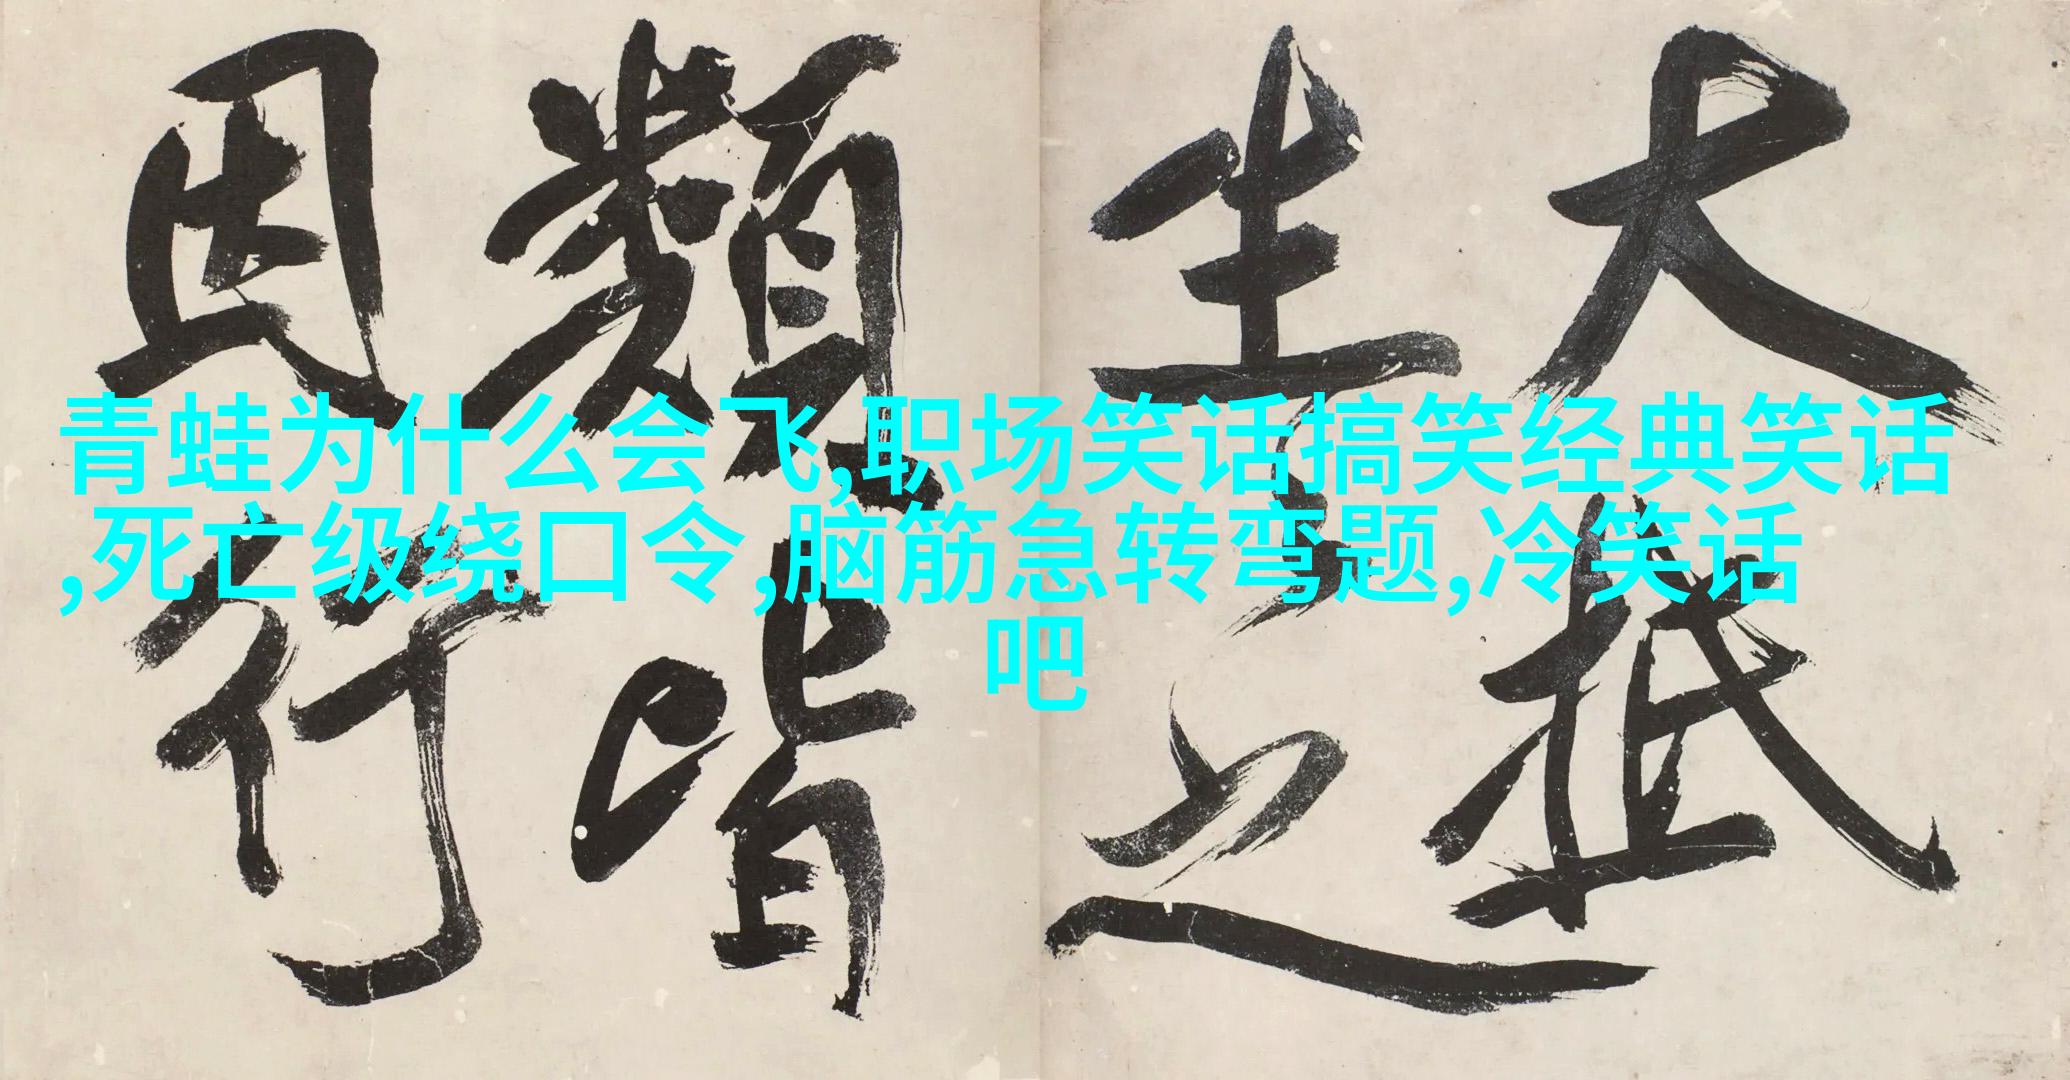 大抵
生之
類皆
因行
青蛙为什么会飞,职场笑话搞笑经典笑话
,死亡级绕口令,脑筋急转弯题,冷笑话
吧